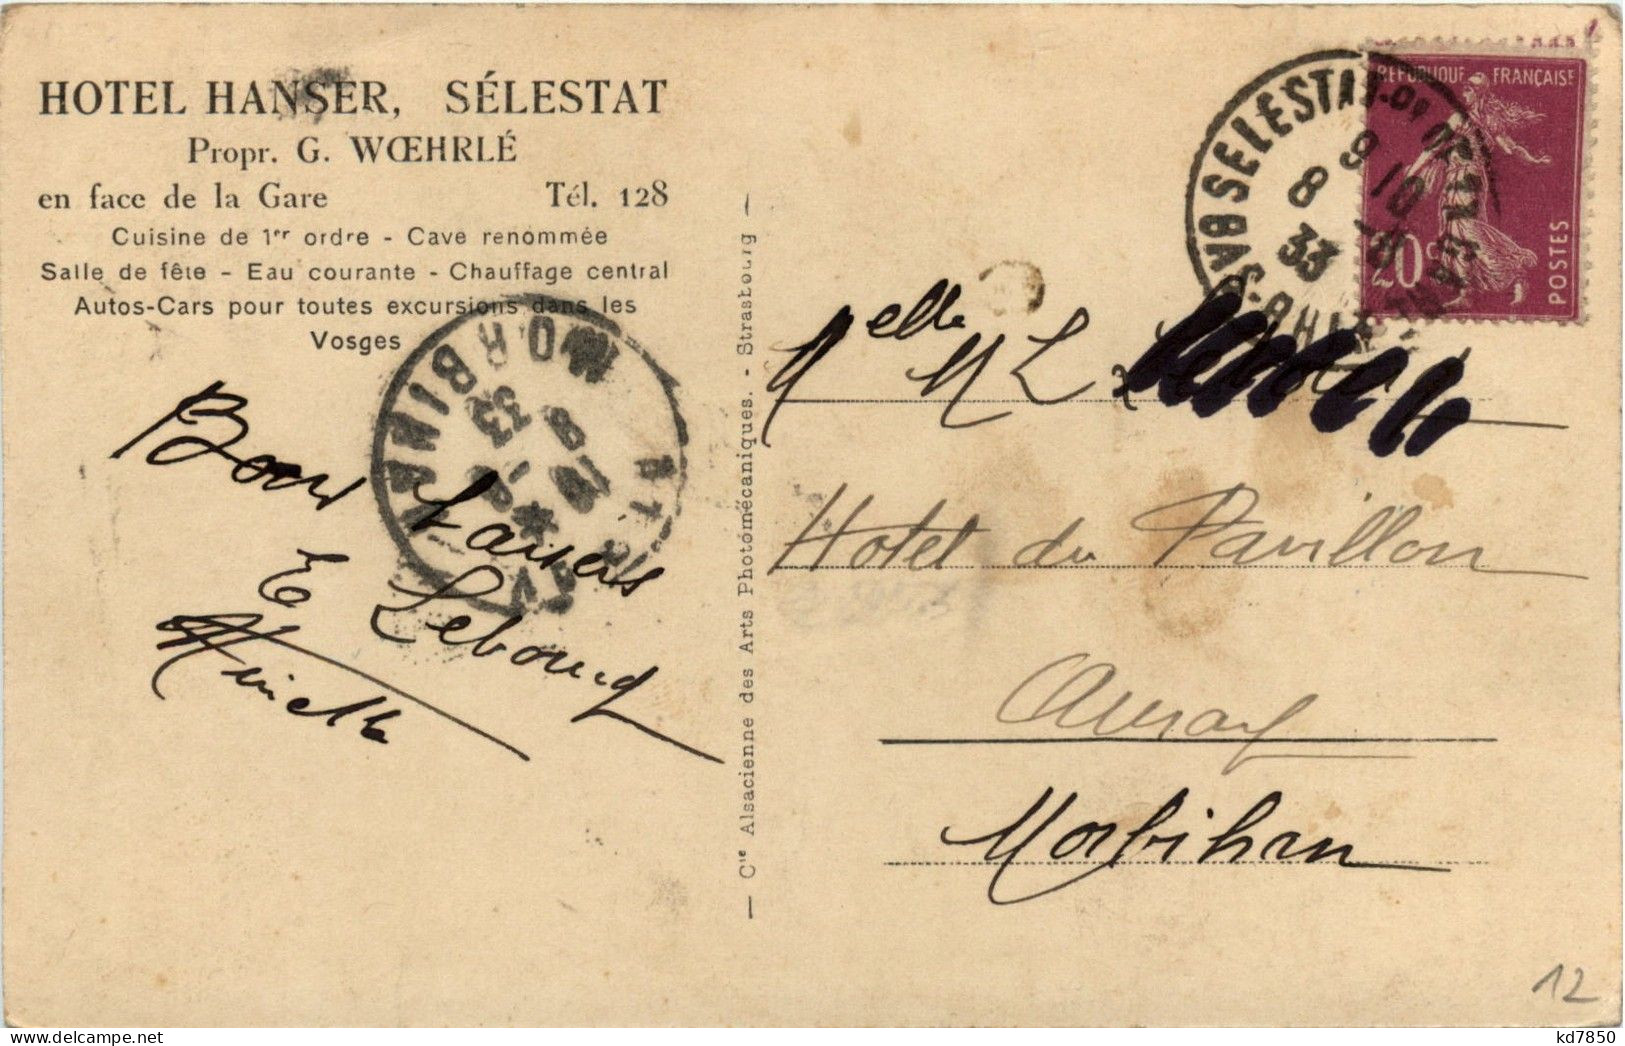 HOTEL HANSER, SÉLESTAT
Propr. G. WŒHRLÉ
en face de la Gare Tél. 128
Cuisine de 1er ordre - Cave renommée
Salle de fête - Eau courante - Chauffage central
Autos-Cars pour toutes excursions dans les
Vosges
Bons baisers
E Lebourg
— Cie Alsacienne des Arts Photomécaniques. - Strasbourg —
SELESTAT
9
8 10
33
BAS-RHIN
RÉPUBLIQUE FRANÇAISE
20c
POSTES
MORBIHAN
8
33
Melle M L
Hotel du Pavillon
Auray
Morbihan
12
kd7850